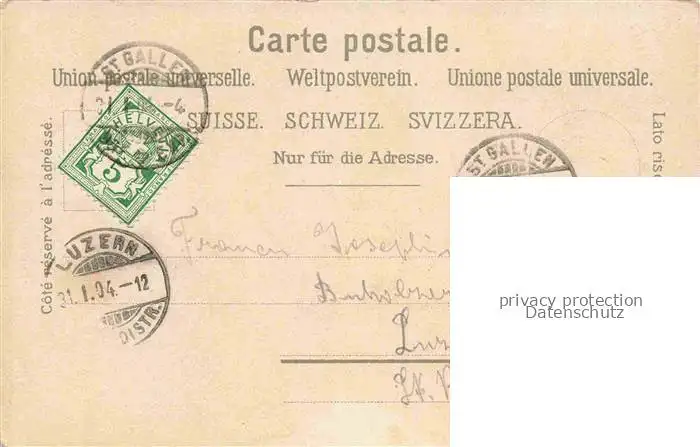 Carte postale.
Union postale universelle. Weltpostverein. Unione postale universale.
SUISSE. SCHWEIZ. SVIZZERA.
Nur für die Adresse.
Côté réservé à l'adresse.
Lato rise
ST GALLEN
HELVETIA
5
ST GALLEN
LUZERN
31.I.04.-12
DISTR.
Josephi
Luz
privacy protection
Datenschutz